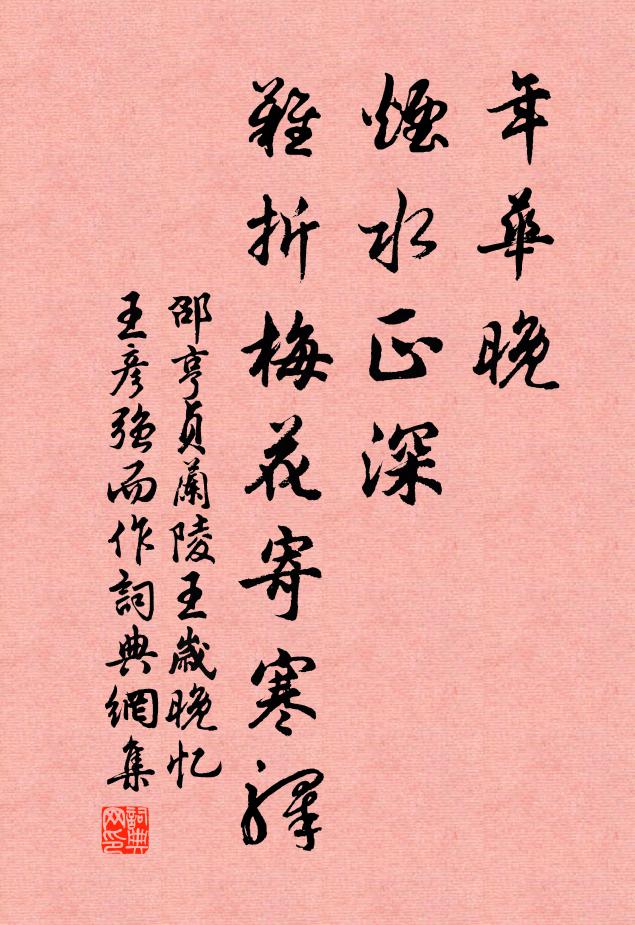 年華晚
煙水正深
難折梅花寄寒驛
邵亨貞蘭陵王歲晚忆
王彥強而作詞典網集
詞典网印